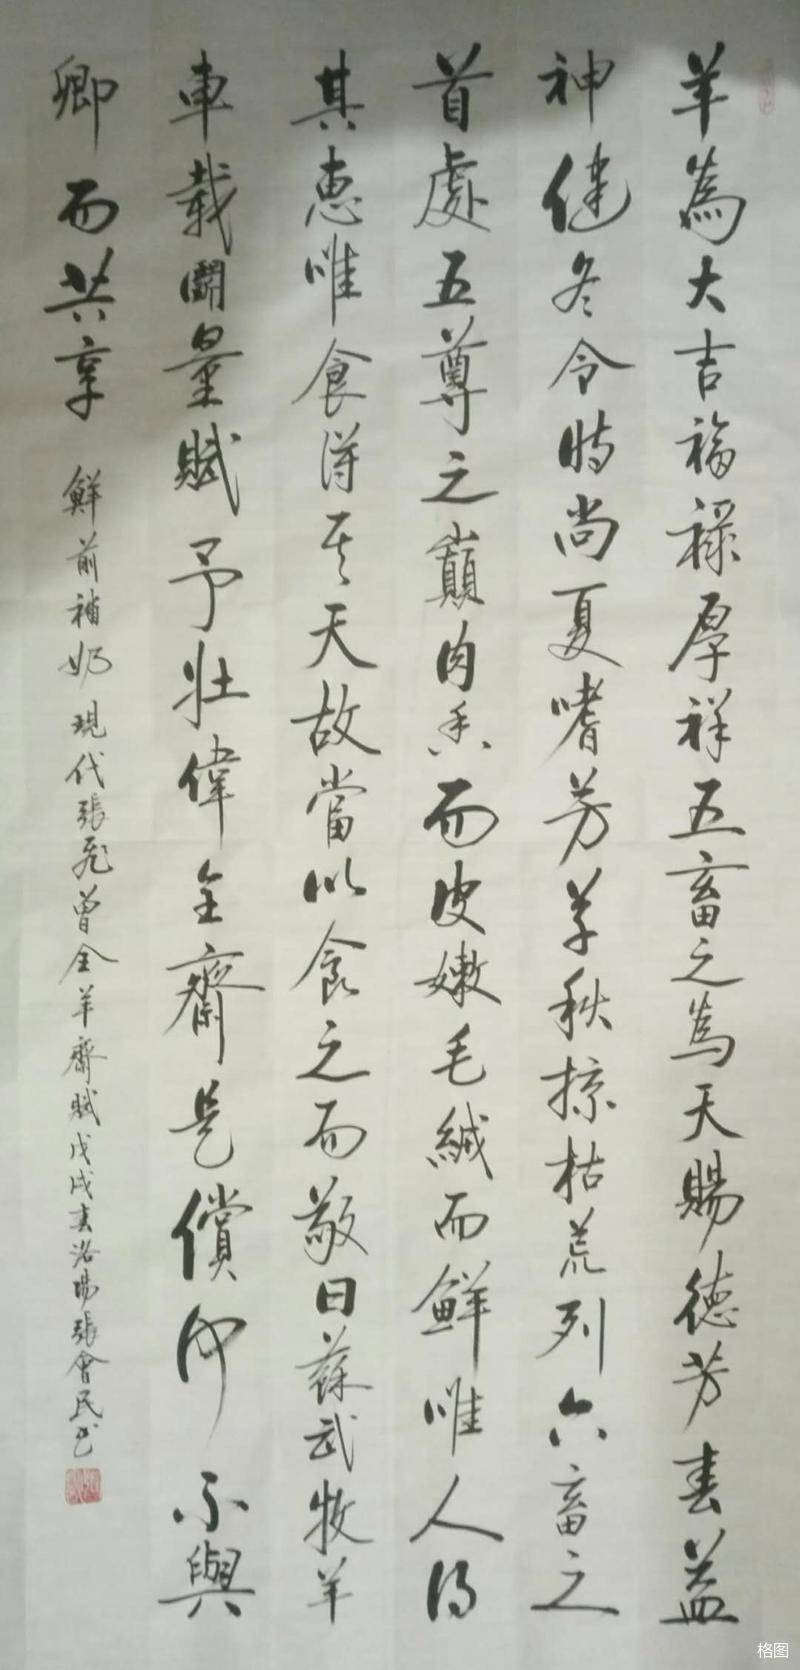 羊為大吉福祿厚祥五畜之為天賜德芳春益
神健冬令時尚夏嗜芳草秋掠枯荒列六畜之
首處五尊之巔肉香而皮嫩毛絨而鮮唯人得
其惠唯食得其天故當以食之而敬曰蘇武牧羊
車載鬭量賦予壯偉全齋是償何不與
卿而共享
鮮前補奶現代張飛曾全羊齋賦戊戌春洛陽張會民書
格图